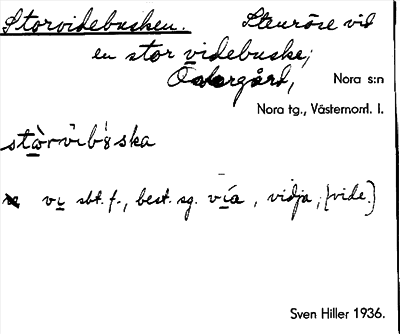 Storvidebusken. Stenröse vid
en stor videbuske;
Östergård, Nora s:n
Nora tg., Västernorrl. l.
stòrvibºska
vi sbt. f., best. sg. vía, vidja, [vide.]
Sven Hiller 1936.